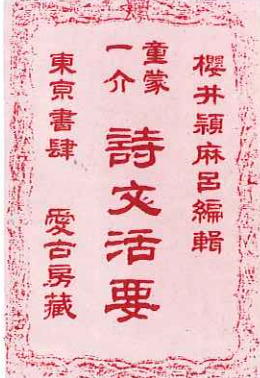 櫻井頴麻呂編輯
童蒙
一介
詩文活要
東京書肆 愛古房藏